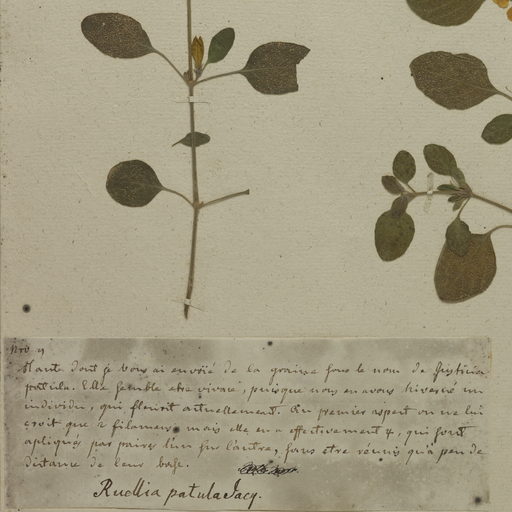 Nro 9
Plante dont je vous ai envoié de la graine sous le nom de Justicia
patula. Elle semble etre vivace, puisque nous en avons hiverné un
individu, qui fleurit actuellement. Au premier aspect on ne lui
croit que 2 filamens mais elle en a effectivement 4, qui sont
apliqués par paires l'un sur l'autre, sans etre reunis qu'à peu de
distance de leur base.
Ruellia patula Jacq.